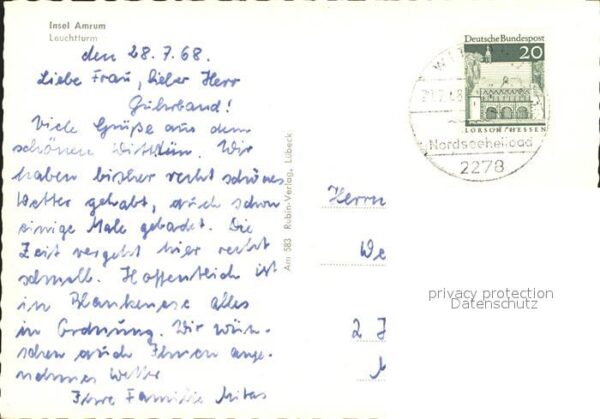 Insel Amrum
Leuchtturm
den 28.7.68.
Liebe Frau, lieber Herr
Viele Grüße aus dem
schönen Wittdün. Wir
haben bisher recht schönes
Wetter gehabt, auch schon
einige Male gebadet. Die
Zeit vergeht hier recht
schnell. Hoffentlich ist
in Blankenese alles
in Ordnung. Wir wün-
schen auch Ihnen ange-
nehmes Wetter
Ihre Familie
Am 583 Rubin-Verlag, Lübeck
Deutsche Bundespost
20
LORSCH/HESSEN
Nordseeheilbad
2278
Herrn
We
2
privacy protection
Datenschutz